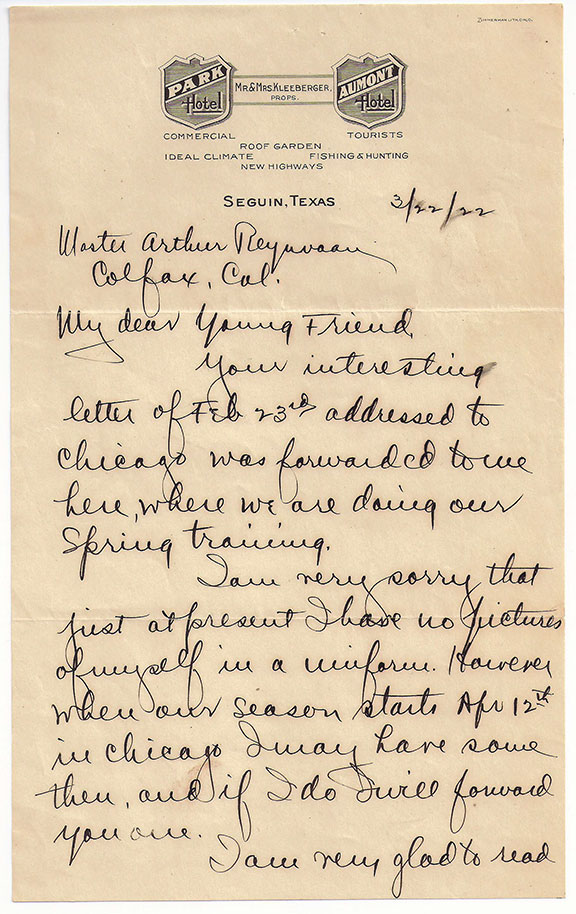 ZIMMERMAN LITH. CHGO.
PARK Hotel
MR. & MRS. KLEEBERGER, PROPS.
AUMONT Hotel
COMMERCIAL TOURISTS
ROOF GARDEN
IDEAL CLIMATE FISHING & HUNTING
NEW HIGHWAYS
SEGUIN, TEXAS 3/22/22
Master Arthur Reynvaan
Colfax, Cal.
My dear Young Friend,
Your interesting
letter of Feb 23rd addressed to
Chicago was forwarded to me
here, where we are doing our
Spring training.
I am very sorry that
just at present I have no pictures
of myself in a uniform. However
when our season starts Apr 12th
in Chicago I may have some
then, and if I do I will forward
you one.
I am very glad to read